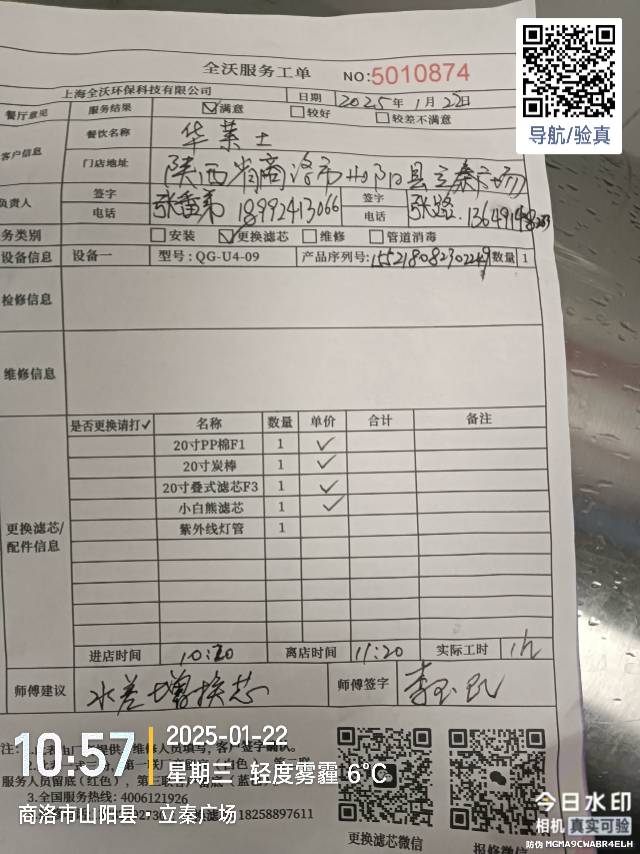 导航/验真
全沃服务工单 NO:5010874
上海全沃环保科技有限公司 日期 2025年1月22日
餐厅意见 服务结果 ☑满意 □较好 □较差不满意
客户信息 餐饮名称 华莱士
门店地址 陕西省商洛市山阳县立秦广场
负责人 签字 电话 18992413066 签字 电话
务类别 □安装 ☑更换滤芯 □维修 □管道消毒
设备信息 设备一 型号:QG-U4-09 产品序列号: 数量 1
检修信息
维修信息
更换滤芯/配件信息
是否更换请打✓ 名称 数量 单价 合计 备注
20寸PP棉F1 1 ✓
20寸炭棒 1 ✓
20寸叠式滤芯F3 1 ✓
小白熊滤芯 1 ✓
紫外线灯管 1
进店时间 10:20 离店时间 11:20 实际工时 1h
师傅建议 水差增换芯 师傅签字
10:57
2025-01-22
星期三 轻度雾霾 6°C
商洛市山阳县·立秦广场
3.全国服务热线: 4006121926
18258897611
更换滤芯微信 报修微信
今日水印
相机 真实可验
防伪 MGMA9CWABR4ELH